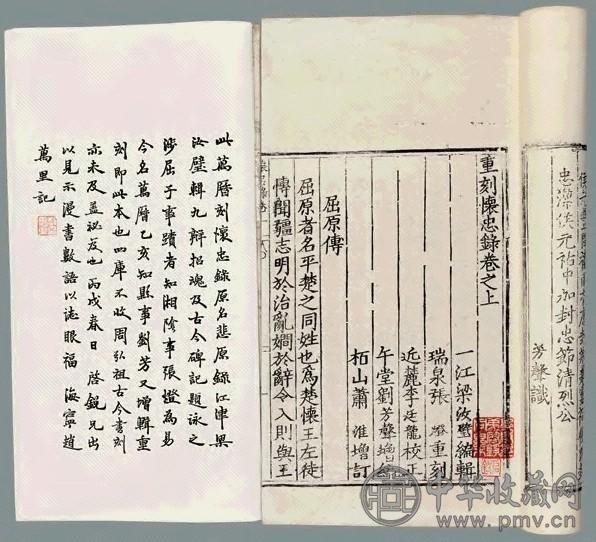 忠潔侯元祐中加封忠節清烈公
芳聲識
重刻懷忠錄卷之上
一江梁汝璧編輯
瑞泉張燈重刻
近麓李廷龍校正
午堂劉芳聲增
栢山蕭淮增訂
屈原傳
屈原者名平楚之同姓也爲楚懷王左徒
博聞彊志明於治亂嫺於辭令入則與王
此萬曆刻懷忠錄原名悲原錄江津梁
汝璧輯九辯招魂及古今碑記題詠之
涉屈子事蹟者知湘陰事張燈爲易
今名萬曆乙亥知縣事劉芳又增輯重
刻即此本也四庫不收周弘祖古今書刻
亦未及益祕笈也丙戌春日啓鋭兄出
以見示漫書數語以誌眼福 海寧趙
萬里記
中华收藏网
www.pmv.cn